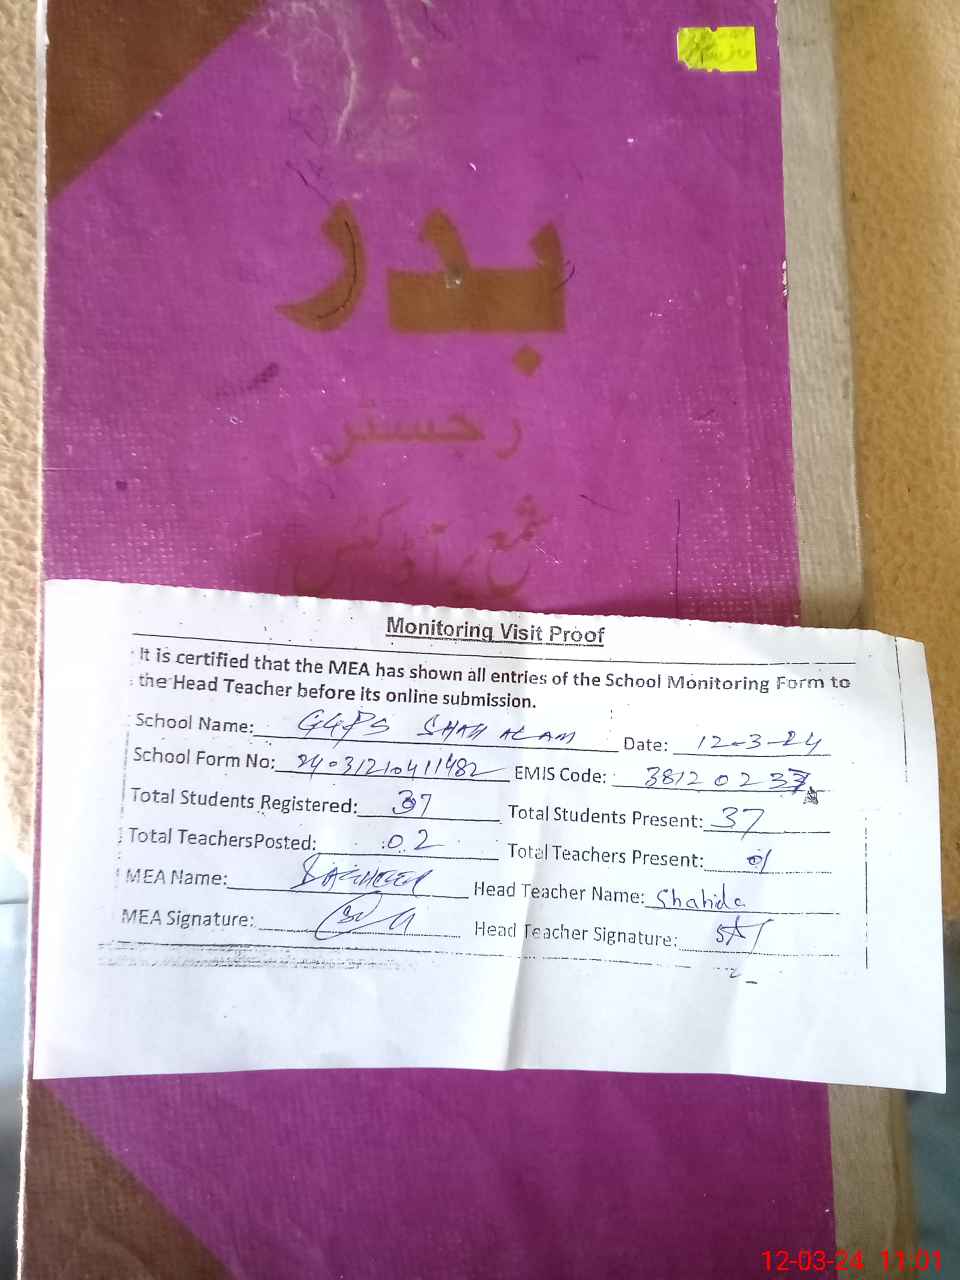 بدر
رجسٹر
شمع پراڈکٹس
Monitoring Visit Proof
It is certified that the MEA has shown all entries of the School Monitoring Form to
the Head Teacher before its online submission.
School Name: GGPS SHAH ALAM Date: 12-3-24
School Form No: 24031210411482 EMIS Code: 38120237
Total Students Registered: 37 Total Students Present: 37
Total TeachersPosted: 02 Total Teachers Present: 01
MEA Name: Head Teacher Name: Shahida
MEA Signature: Head Teacher Signature:
12-03-24 11:01